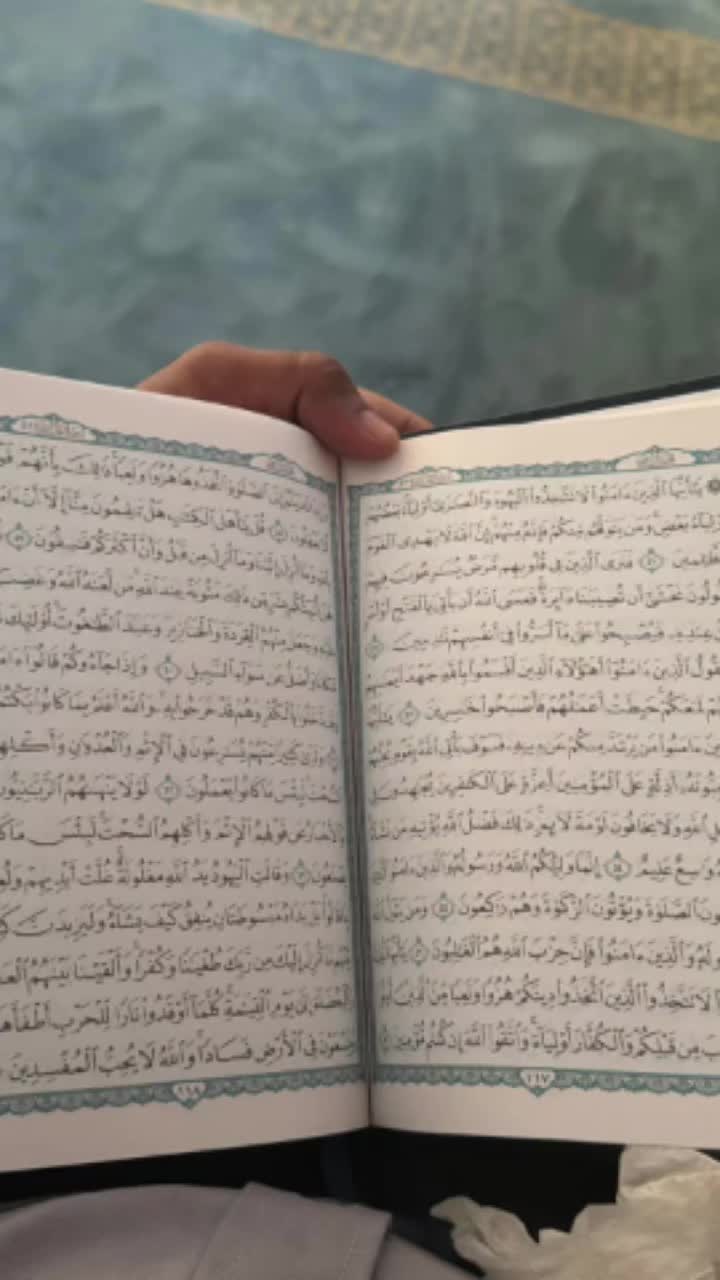 ۞ يَٰٓأَيُّهَا ٱلَّذِينَ ءَامَنُوا۟ لَا تَتَّخِذُوا۟ ٱلْيَهُودَ وَٱلنَّصَٰرَىٰٓ أَوْلِيَآءَ بَعْضُهُمْ
بَعْضٍ وَمَن يَتَوَلَّهُم مِّنكُمْ فَإِنَّهُۥ مِنْهُمْ إِنَّ ٱللَّهَ لَا يَهْدِى ٱلْقَوْمَ
٥١ فَتَرَى ٱلَّذِينَ فِى قُلُوبِهِم مَّرَضٌ يُسَٰرِعُونَ فِيهِمْ
نَخْشَىٰٓ أَن تُصِيبَنَا دَآئِرَةٌ فَعَسَى ٱللَّهُ أَن يَأْتِىَ بِٱلْفَتْحِ أَوْ أَمْرٍ
عِندِهِۦ فَيُصْبِحُوا۟ عَلَىٰ مَآ أَسَرُّوا۟ فِىٓ أَنفُسِهِمْ نَٰدِمِينَ ٥٢
ٱلَّذِينَ ءَامَنُوٓا۟ أَهَٰٓؤُلَآءِ ٱلَّذِينَ أَقْسَمُوا۟ بِٱللَّهِ جَهْدَ أَيْمَٰنِهِمْ
لَمَعَكُمْ حَبِطَتْ أَعْمَٰلُهُمْ فَأَصْبَحُوا۟ خَٰسِرِينَ ٥٣ يَٰٓأَيُّهَا
ءَامَنُوا۟ مَن يَرْتَدَّ مِنكُمْ عَن دِينِهِۦ فَسَوْفَ يَأْتِى ٱللَّهُ بِقَوْمٍ يُحِبُّهُمْ
أَذِلَّةٍ عَلَى ٱلْمُؤْمِنِينَ أَعِزَّةٍ عَلَى ٱلْكَٰفِرِينَ يُجَٰهِدُونَ فِى
ٱللَّهِ وَلَا يَخَافُونَ لَوْمَةَ لَآئِمٍ ذَٰلِكَ فَضْلُ ٱللَّهِ يُؤْتِيهِ مَن يَشَآءُ
وَٰسِعٌ عَلِيمٌ ٥٤ إِنَّمَا وَلِيُّكُمُ ٱللَّهُ وَرَسُولُهُۥ وَٱلَّذِينَ ءَامَنُوا۟ ٱلَّذِينَ
ٱلصَّلَوٰةَ وَيُؤْتُونَ ٱلزَّكَوٰةَ وَهُمْ رَٰكِعُونَ ٥٥ وَمَن يَتَوَلَّ ٱللَّهَ
وَٱلَّذِينَ ءَامَنُوا۟ فَإِنَّ حِزْبَ ٱللَّهِ هُمُ ٱلْغَٰلِبُونَ ٥٦ يَٰٓأَيُّهَا
لَا تَتَّخِذُوا۟ ٱلَّذِينَ ٱتَّخَذُوا۟ دِينَكُمْ هُزُوًا وَلَعِبًا مِّنَ ٱلَّذِينَ أُوتُوا۟
مِن قَبْلِكُمْ وَٱلْكُفَّارَ أَوْلِيَآءَ وَٱتَّقُوا۟ ٱللَّهَ إِن كُنتُم مُّؤْمِنِينَ ٥٧
١١٧
ٱلصَّلَوٰةِ ٱتَّخَذُوهَا هُزُوًا وَلَعِبًا ذَٰلِكَ بِأَنَّهُمْ
لَّا يَعْقِلُونَ ٥٨ قُلْ يَٰٓأَهْلَ ٱلْكِتَٰبِ هَلْ تَنقِمُونَ مِنَّآ إِلَّآ أَنْ ءَامَنَّا
بِٱللَّهِ وَمَآ أُنزِلَ إِلَيْنَا وَمَآ أُنزِلَ مِن قَبْلُ وَأَنَّ أَكْثَرَكُمْ فَٰسِقُونَ ٥٩
هَلْ أُنَبِّئُكُم بِشَرٍّ مِّن ذَٰلِكَ مَثُوبَةً عِندَ ٱللَّهِ مَن لَّعَنَهُ ٱللَّهُ وَغَضِبَ
وَجَعَلَ مِنْهُمُ ٱلْقِرَدَةَ وَٱلْخَنَازِيرَ وَعَبَدَ ٱلطَّٰغُوتَ أُو۟لَٰٓئِكَ
مَّكَانًا وَأَضَلُّ عَن سَوَآءِ ٱلسَّبِيلِ ٦٠ وَإِذَا جَآءُوكُمْ قَالُوٓا۟
وَقَد دَّخَلُوا۟ بِٱلْكُفْرِ وَهُمْ قَدْ خَرَجُوا۟ بِهِۦ وَٱللَّهُ أَعْلَمُ بِمَا كَانُوا۟ يَكْتُمُونَ
٦١ وَتَرَىٰ كَثِيرًا مِّنْهُمْ يُسَٰرِعُونَ فِى ٱلْإِثْمِ وَٱلْعُدْوَٰنِ وَأَكْلِهِمُ
ٱلسُّحْتَ لَبِئْسَ مَا كَانُوا۟ يَعْمَلُونَ ٦٢ لَوْلَا يَنْهَىٰهُمُ ٱلرَّبَّٰنِيُّونَ
وَٱلْأَحْبَارُ عَن قَوْلِهِمُ ٱلْإِثْمَ وَأَكْلِهِمُ ٱلسُّحْتَ لَبِئْسَ مَا
يَصْنَعُونَ ٦٣ وَقَالَتِ ٱلْيَهُودُ يَدُ ٱللَّهِ مَغْلُولَةٌ غُلَّتْ أَيْدِيهِمْ
بِمَا قَالُوا۟ بَلْ يَدَاهُ مَبْسُوطَتَانِ يُنفِقُ كَيْفَ يَشَآءُ وَلَيَزِيدَنَّ
مِنْهُم مَّآ أُنزِلَ إِلَيْكَ مِن رَّبِّكَ طُغْيَٰنًا وَكُفْرًا وَأَلْقَيْنَا بَيْنَهُمُ
وَٱلْبَغْضَآءَ إِلَىٰ يَوْمِ ٱلْقِيَٰمَةِ كُلَّمَآ أَوْقَدُوا۟ نَارًا لِّلْحَرْبِ أَطْفَأَهَا
وَيَسْعَوْنَ فِى ٱلْأَرْضِ فَسَادًا وَٱللَّهُ لَا يُحِبُّ ٱلْمُفْسِدِينَ
١١٨